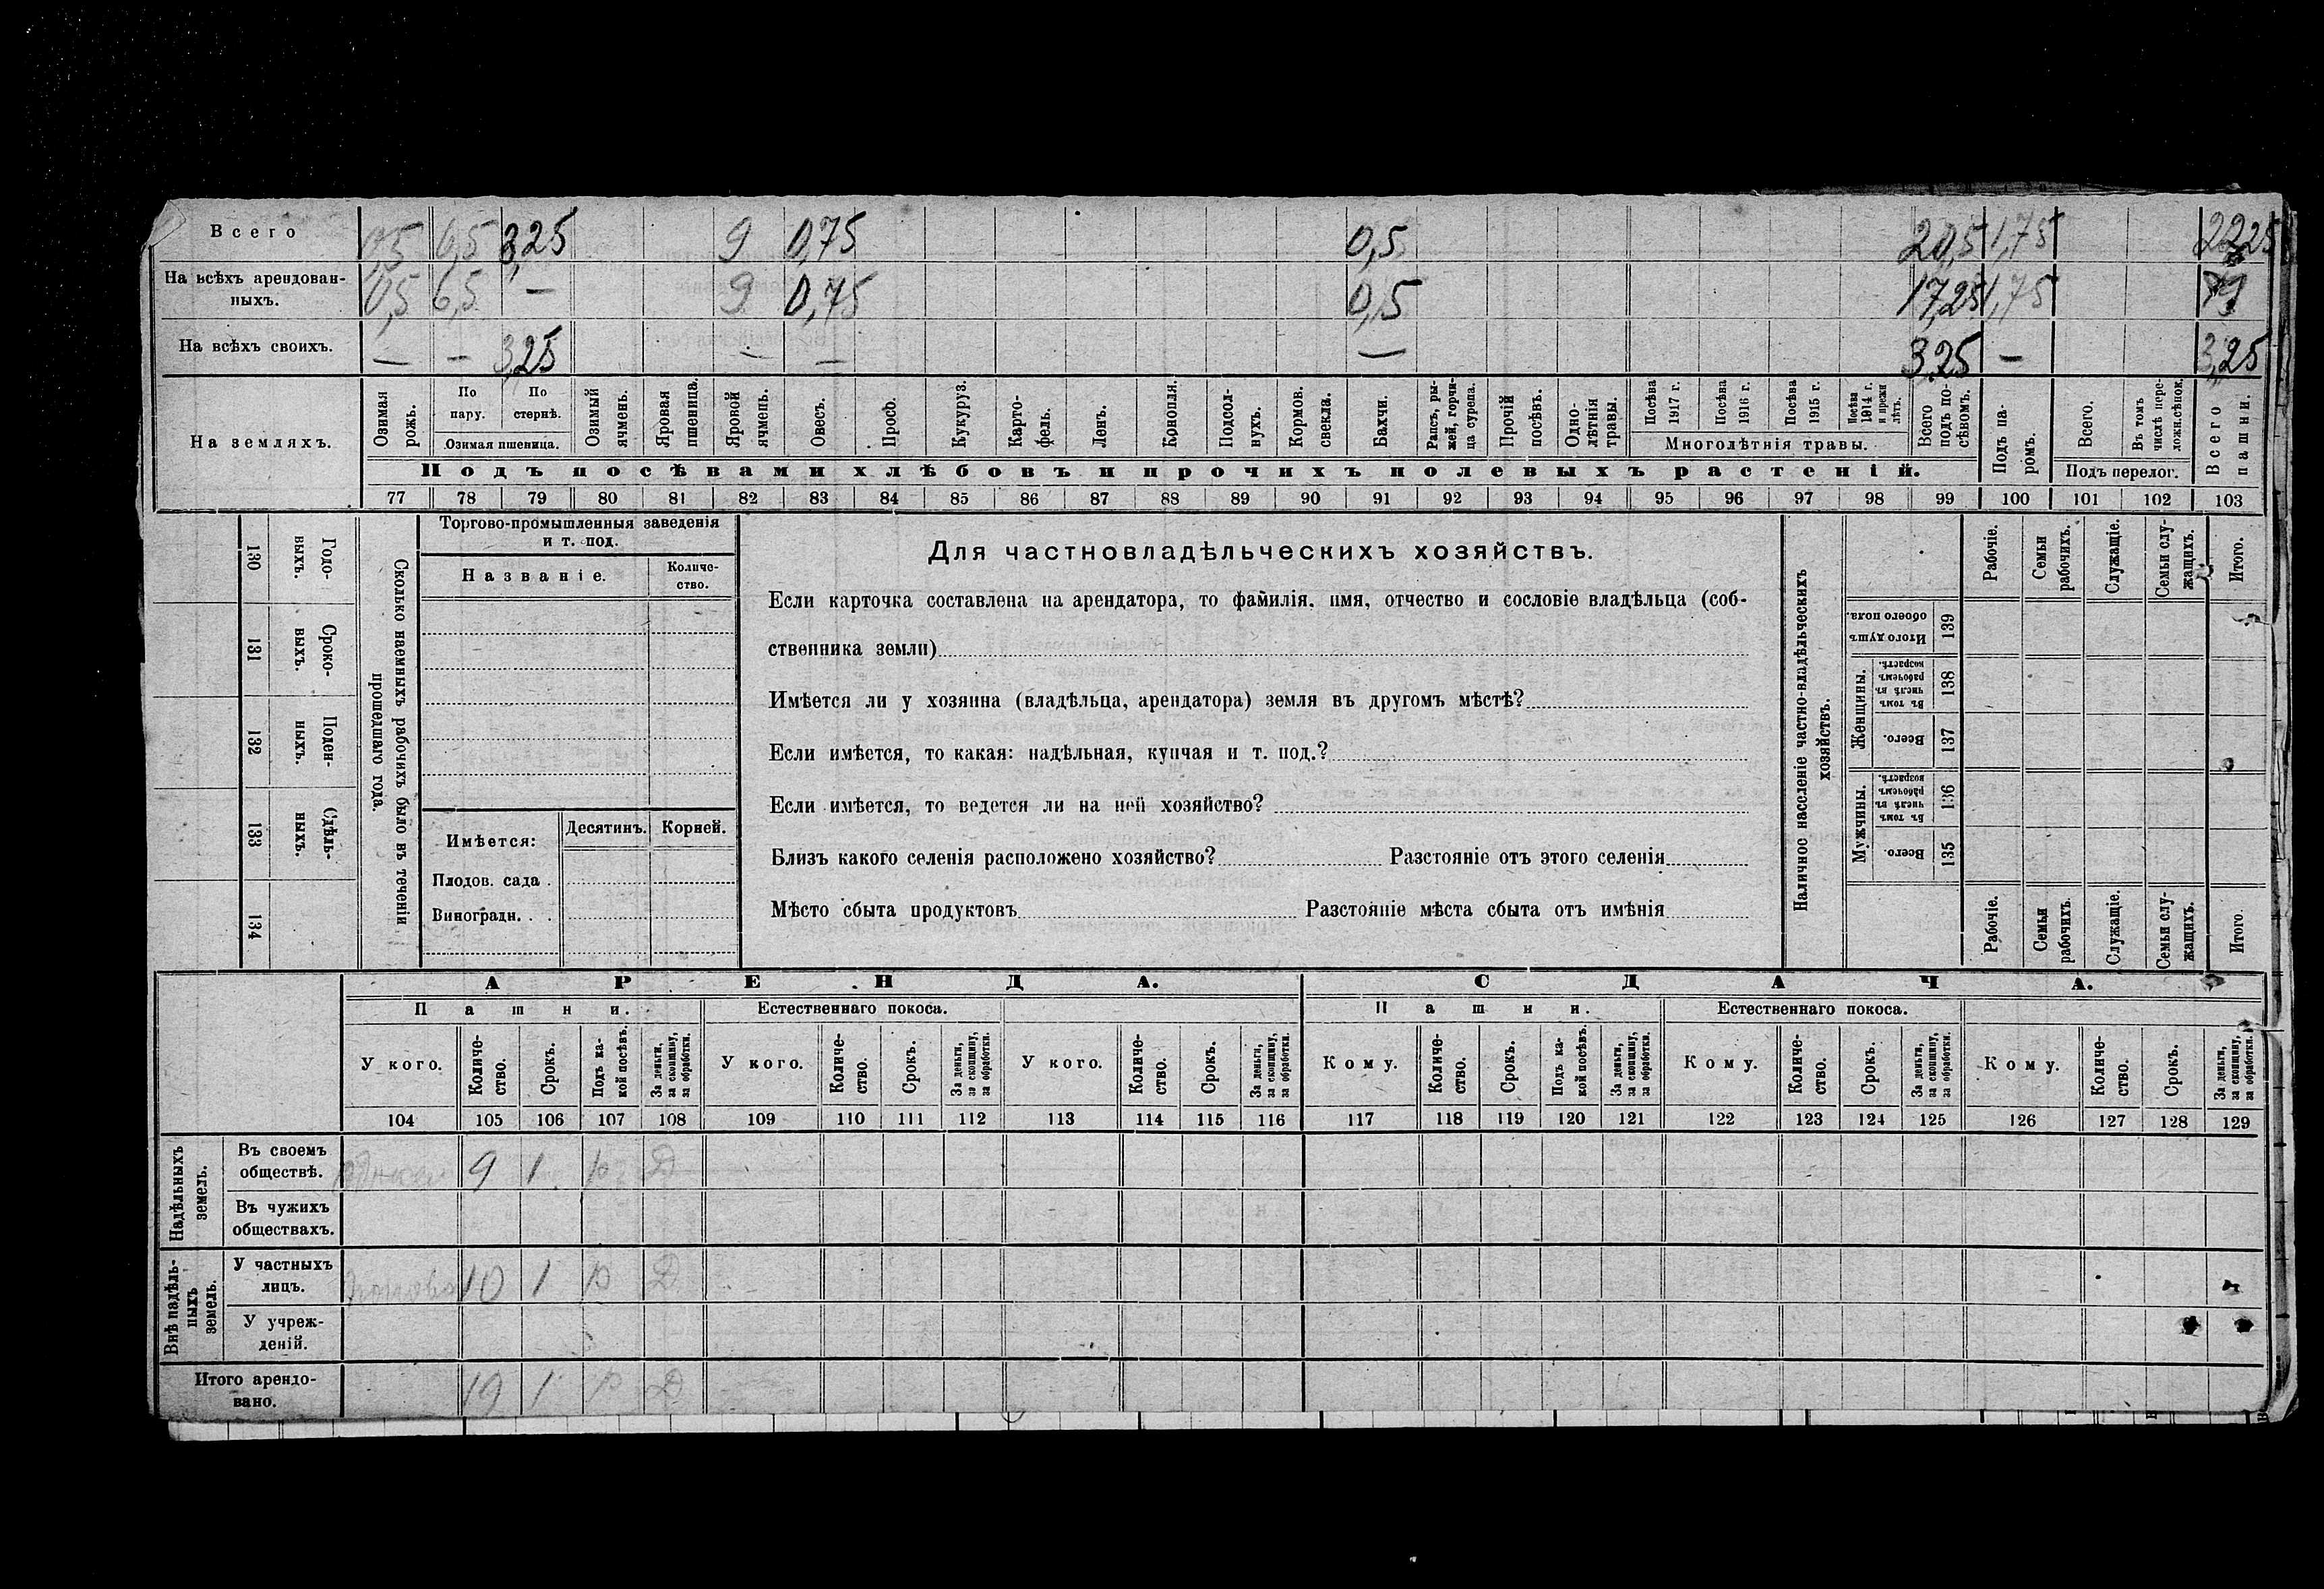 Всего 0,5 6,5 3,25 9 0,75 0,5 20,5 1,75 22,25
На всѣхъ арендован-
ныхъ. 0,5 6,5 — 9 0,75 0,5 17,25 1,75 19
На всѣхъ своихъ. — — 3,25 — — — 3,25 — 3,25
На земляхъ.
Озимая рожь.
По пару.
По стернѣ.
Озимая пшеница.
Озимый ячмень.
Яровая пшеница.
Яровой ячмень.
Овесъ.
Просо.
Кукуруз.
Карто-
фель.
Ленъ.
Конопля.
Подсол-
нухъ.
Кормов.
свекла.
Бахчи.
Рапсъ, ры-
жей, горчи-
ца сурепа.
Прочій посѣвъ.
Одно-
лѣтнія травы.
Посѣва 1917 г.
Посѣва 1916 г.
Посѣва 1915 г.
Посѣва 1914 г. и прежн лѣтъ.
Многолѣтнія травы.
Всего подъ по-
сѣвомъ.
Подъ па-
ромъ.
Всего.
Въ томъ числѣ пере-
ложн.сѣнок.
Подъ перелог.
Всего пашни.
Подъ посѣвами хлѣбовъ и прочихъ полевыхъ растеній.
77 78 79 80 81 82 83 84 85 86 87 88 89 90 91 92 93 94 95 96 97 98 99 100 101 102 103
130 Годо-
выхъ.
131 Сроко-
выхъ.
132 Поден-
ныхъ.
133 Сдѣль-
ныхъ.
134
Сколько наемныхъ рабочихъ было въ теченіи
прошедшаго года.
Торгово-промышленныя заведенія
и т. под.
Названіе.
Количе-
ство.
Имѣется:
Десятинъ.
Корней.
Плодов. сада .
Виноградн. . .
Для частновладѣльческихъ хозяйствъ.
Если карточка составлена на арендатора, то фамилія, имя, отчество и сословіе владѣльца (соб-
ственника земли)
Имѣется ли у хозяина (владѣльца, арендатора) земля въ другомъ мѣстѣ?
Если имѣется, то какая: надѣльная, купчая и т. под.?
Если имѣется, то ведется ли на ней хозяйство?
Близъ какого селенія расположено хозяйство? Разстояніе отъ этого селенія
Мѣсто сбыта продуктовъ Разстояніе мѣста сбыта отъ имѣнія
Наличное населеніе частно-владѣльческихъ
хозяйствъ.
Рабочіе.
Семьи рабочихъ.
Служащіе.
Семьи слу-
жащихъ.
Итого.
Итого душъ обоего пола. 139
Женщины.
Въ томъ числѣ въ рабочемъ возрастѣ. 138
Всего. 137
Мужчины.
Въ томъ числѣ въ рабочемъ возрастѣ. 136
Всего. 135
Рабочіе.
Семьи рабочихъ.
Служащіе.
Семьи слу-
жащихъ.
Итого
АРЕНДА. СДАЧА.
Пашни. Естественнаго покоса. Пашни. Естественнаго покоса.
У кого.
Количе-
ство.
Срокъ.
Подъ ка-
кой посѣвъ.
За деньги, за скопщину, за обработки.
У кого.
Количе-
ство.
Срокъ.
За деньги, за скопщину, за обработки.
У кого.
Количе-
ство.
Срокъ.
За деньги, за скопщину, за обработки.
Кому.
Количе-
ство.
Срокъ.
Подъ ка-
кой посѣвъ.
За деньги, за скопщину, за обработки.
Кому.
Количе-
ство.
Срокъ.
За деньги, за скопщину, за обработки.
Кому.
Количе-
ство.
Срокъ.
За деньги, за скопщину, за обработки.
104 105 106 107 108 109 110 111 112 113 114 115 116 117 118 119 120 121 122 123 124 125 126 127 128 129
Надѣльныхъ земель.
Въ своемъ
обществѣ. 9 1 Д
Въ чужихъ
обществахъ.
Внѣ надѣль-
ныхъ земель.
У частныхъ
лицъ. 10 1 Д
У учреж-
деній.
Итого арендо-
вано. 19 1 Д